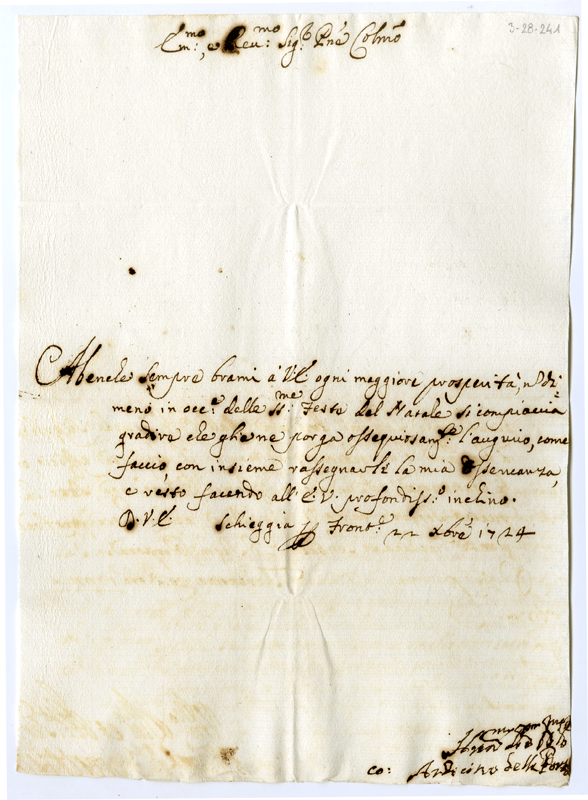 3-28-241
Em:mo, e Reu:mo Sig:r Pne Colmo
Abenche sempre brami à V.E. ogni maggiore prosperità, nodi
meno in occ:e delle SS:me Feste del Natale si compiaccia
gradire che gliene porga ossequiosam:te l'augurio, come
faccio, con insieme rassegnarle la mia osseruanza,
e resto facendo all'E.V. profondiss:o inchino.
D. V. E. Scheggia Front:e 22 Xbre 1724
Co: Ardicino della Porta